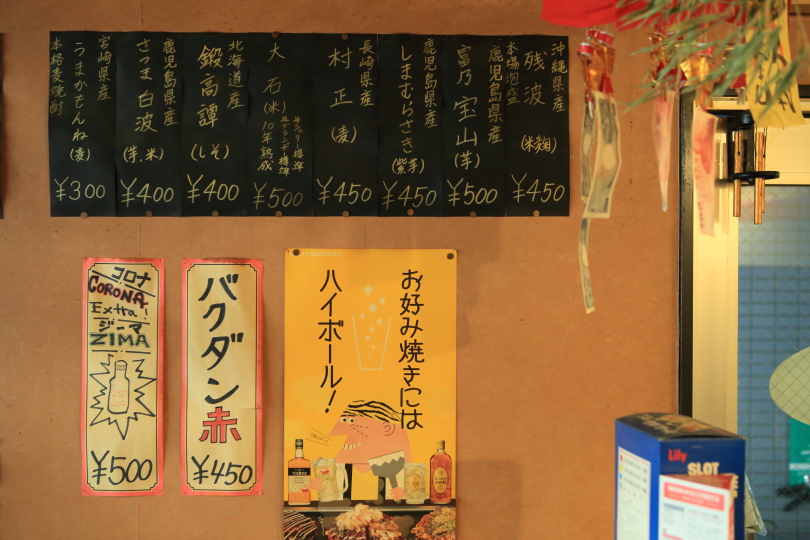 沖縄県産
本場泡盛
残波
(米麹)
¥450
鹿児島県産
富乃宝山
(芋)
¥500
鹿児島県産
しまむらさき
(紫芋)
¥450
長崎県産
村正
(麦)
¥450
大石(米)
10年熟成
¥500
北海道産
鍛高譚
(しそ)
¥400
鹿児島県産
さつま白波
(芋、米)
¥400
宮崎県産
うまかもんね
(麦)
本格麦焼酎
¥300
コロナ
CORONA
Extra!
ジーマ
ZIMA
¥500
バクダン
赤
¥450
お好み焼きには
ハイボール!
Lily
SLOT